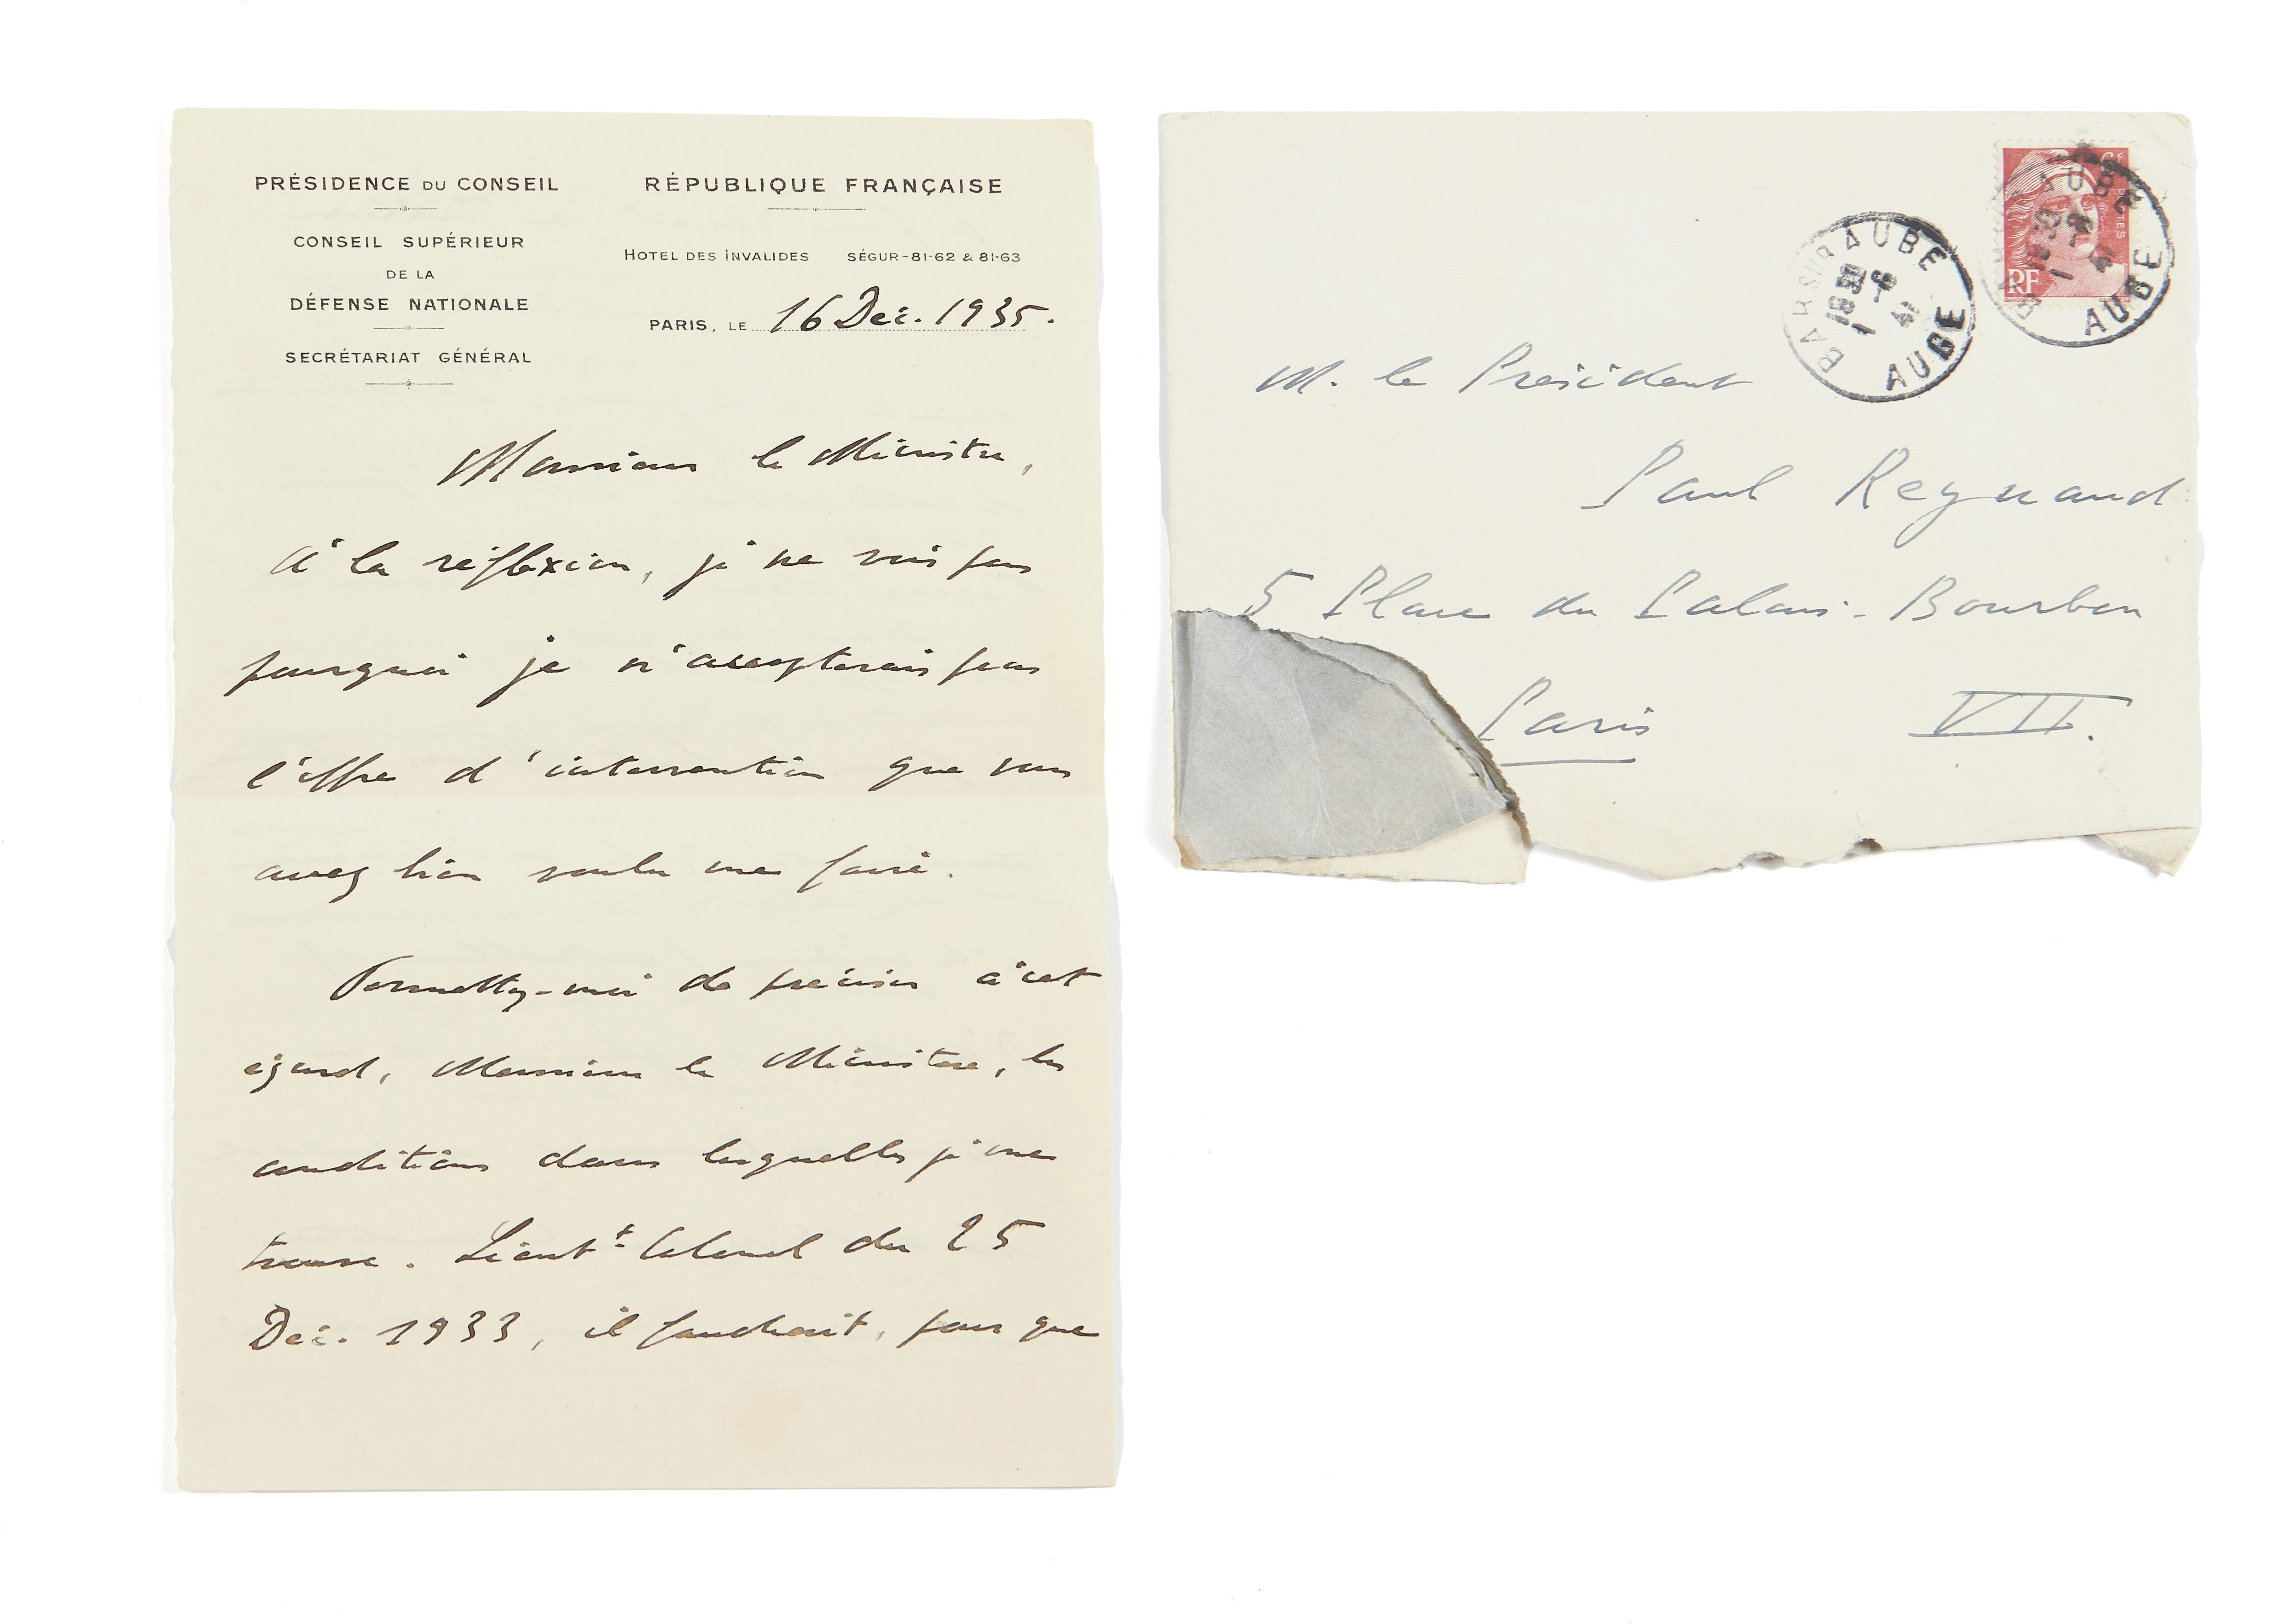 PRÉSIDENCE DU CONSEIL
CONSEIL SUPÉRIEUR
DE LA
DÉFENSE NATIONALE
SECRÉTARIAT GÉNÉRAL
RÉPUBLIQUE FRANÇAISE
HOTEL DES INVALIDES SÉGUR-81-62 & 81-63
PARIS, LE 16 Déc. 1935.
Monsieur le Ministre,
A la réflexion, je ne vois pas
pourquoi je n'accepterais pas
l'offre d'intervention que vous
avez bien voulu me faire.
Permettez-moi de préciser à cet
égard, Monsieur le Ministre, les
conditions dans lesquelles je me
trouve. Lieut.t Colonel du 25
Déc. 1933, il faudrait, pour que
M. le Président
Paul Reynaud
5 Place du Palais-Bourbon
Paris VII.
BAR SUR AUBE
AUBE
RF
POSTES
AUBE
AUBE